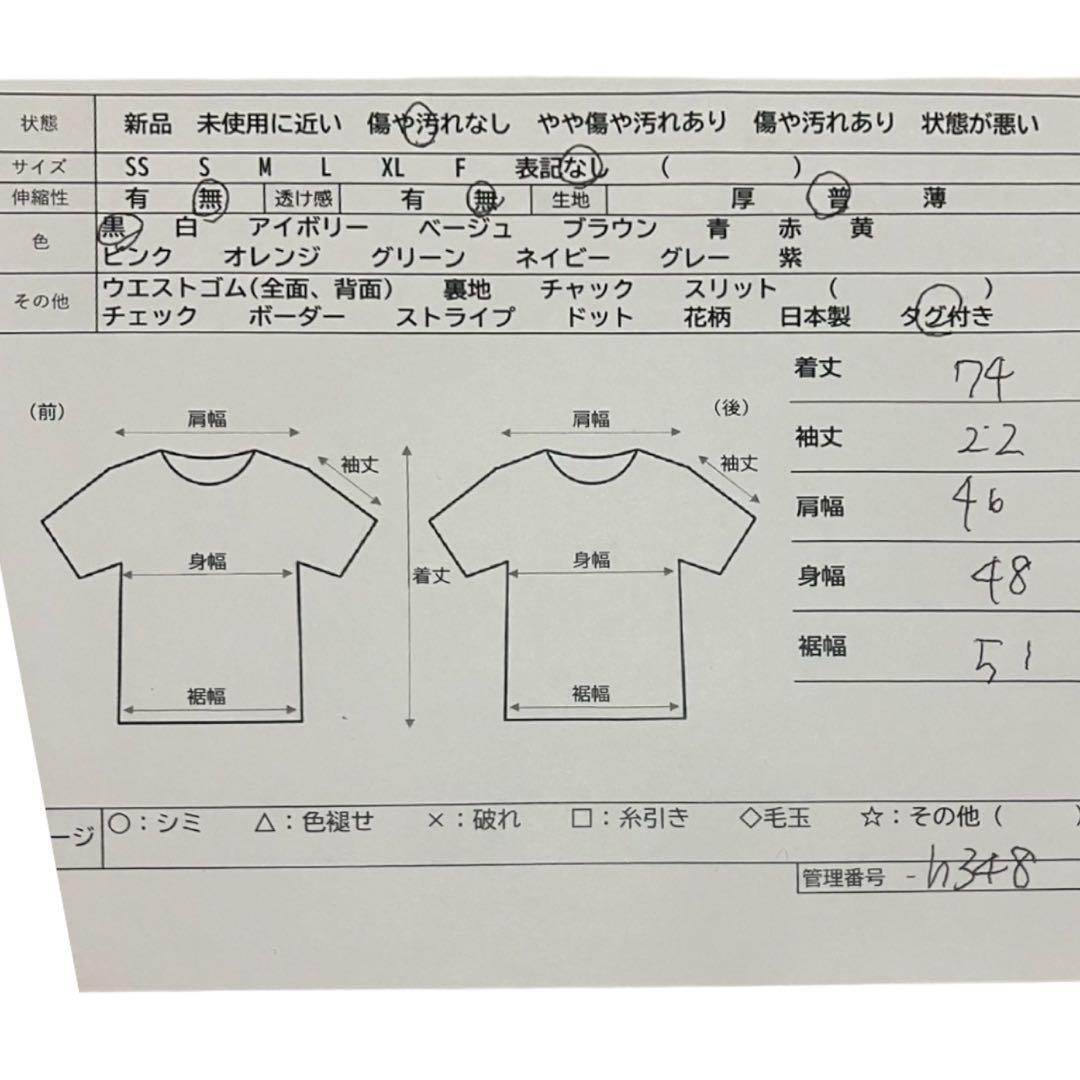 状態 新品 未使用に近い 傷や汚れなし やや傷や汚れあり 傷や汚れあり 状態が悪い
サイズ SS S M L XL F 表記なし ( )
伸縮性 有 無 透け感 有 無 生地 厚 普 薄
色 黒 白 アイボリー ベージュ ブラウン 青 赤 黄
ピンク オレンジ グリーン ネイビー グレー 紫
その他 ウエストゴム(全面、背面) 裏地 チャック スリット ( )
チェック ボーダー ストライプ ドット 花柄 日本製 タグ付き
(前)
肩幅
袖丈
身幅
着丈
裾幅
(後)
肩幅
袖丈
身幅
裾幅
着丈 74
袖丈 22
肩幅 46
身幅 48
裾幅 51
ージ ○:シミ △:色褪せ ×:破れ □:糸引き ◇毛玉 ☆:その他 ( )
管理番号 -h348